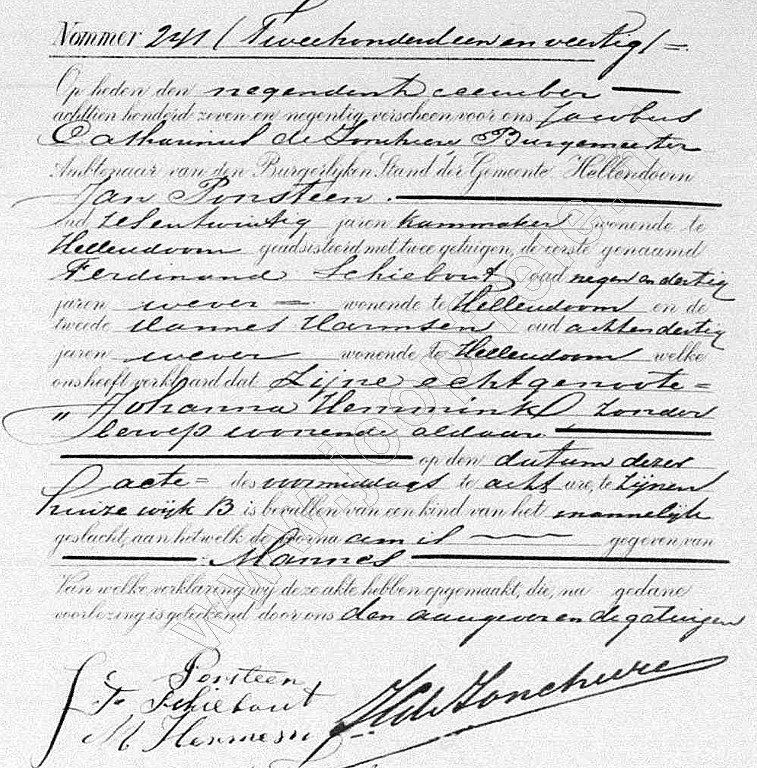 Nommer 241 (Tweehonderdeenenveertig) =
Op heden den negenden december
achttien honderd zeven en negentig, verscheen voor ons Jacobus
Catharinus de Jonchere Burgemeester
Ambtenaar van den Burgerlijken Stand der Gemeente Hellendoorn
Jan Ponsteen.
oud zesentwintig jaren kammaker wonende te
Hellendoorn geadsisteerd met twee getuigen, de eerste genaamd
Ferdinand Schiebout, oud negenendertig
jaren wever = wonende te Hellendoorn en de
tweede Mannes Harmsen oud achtendertig
jaren wever wonende te Hellendoorn welke
ons heeft verklaard dat zijne echtgenoote =
" Johanna Hemmink zonder
beroep wonende aldaar
op den datum dezer
acte = des voormiddags te acht ure, te zijnen
huize wijk B is bevallen van een kind van het mannelijk
geslacht, aan hetwelk de voorna am is gegeven van
Mannes
Van welke verklaring wij deze akte hebben opgemaakt, die, na gedane
voorlezing is geteekend door ons den aangever en de getuigen
Ponsteen
F. Schiebout
M Hermesen
JCdeJonchere